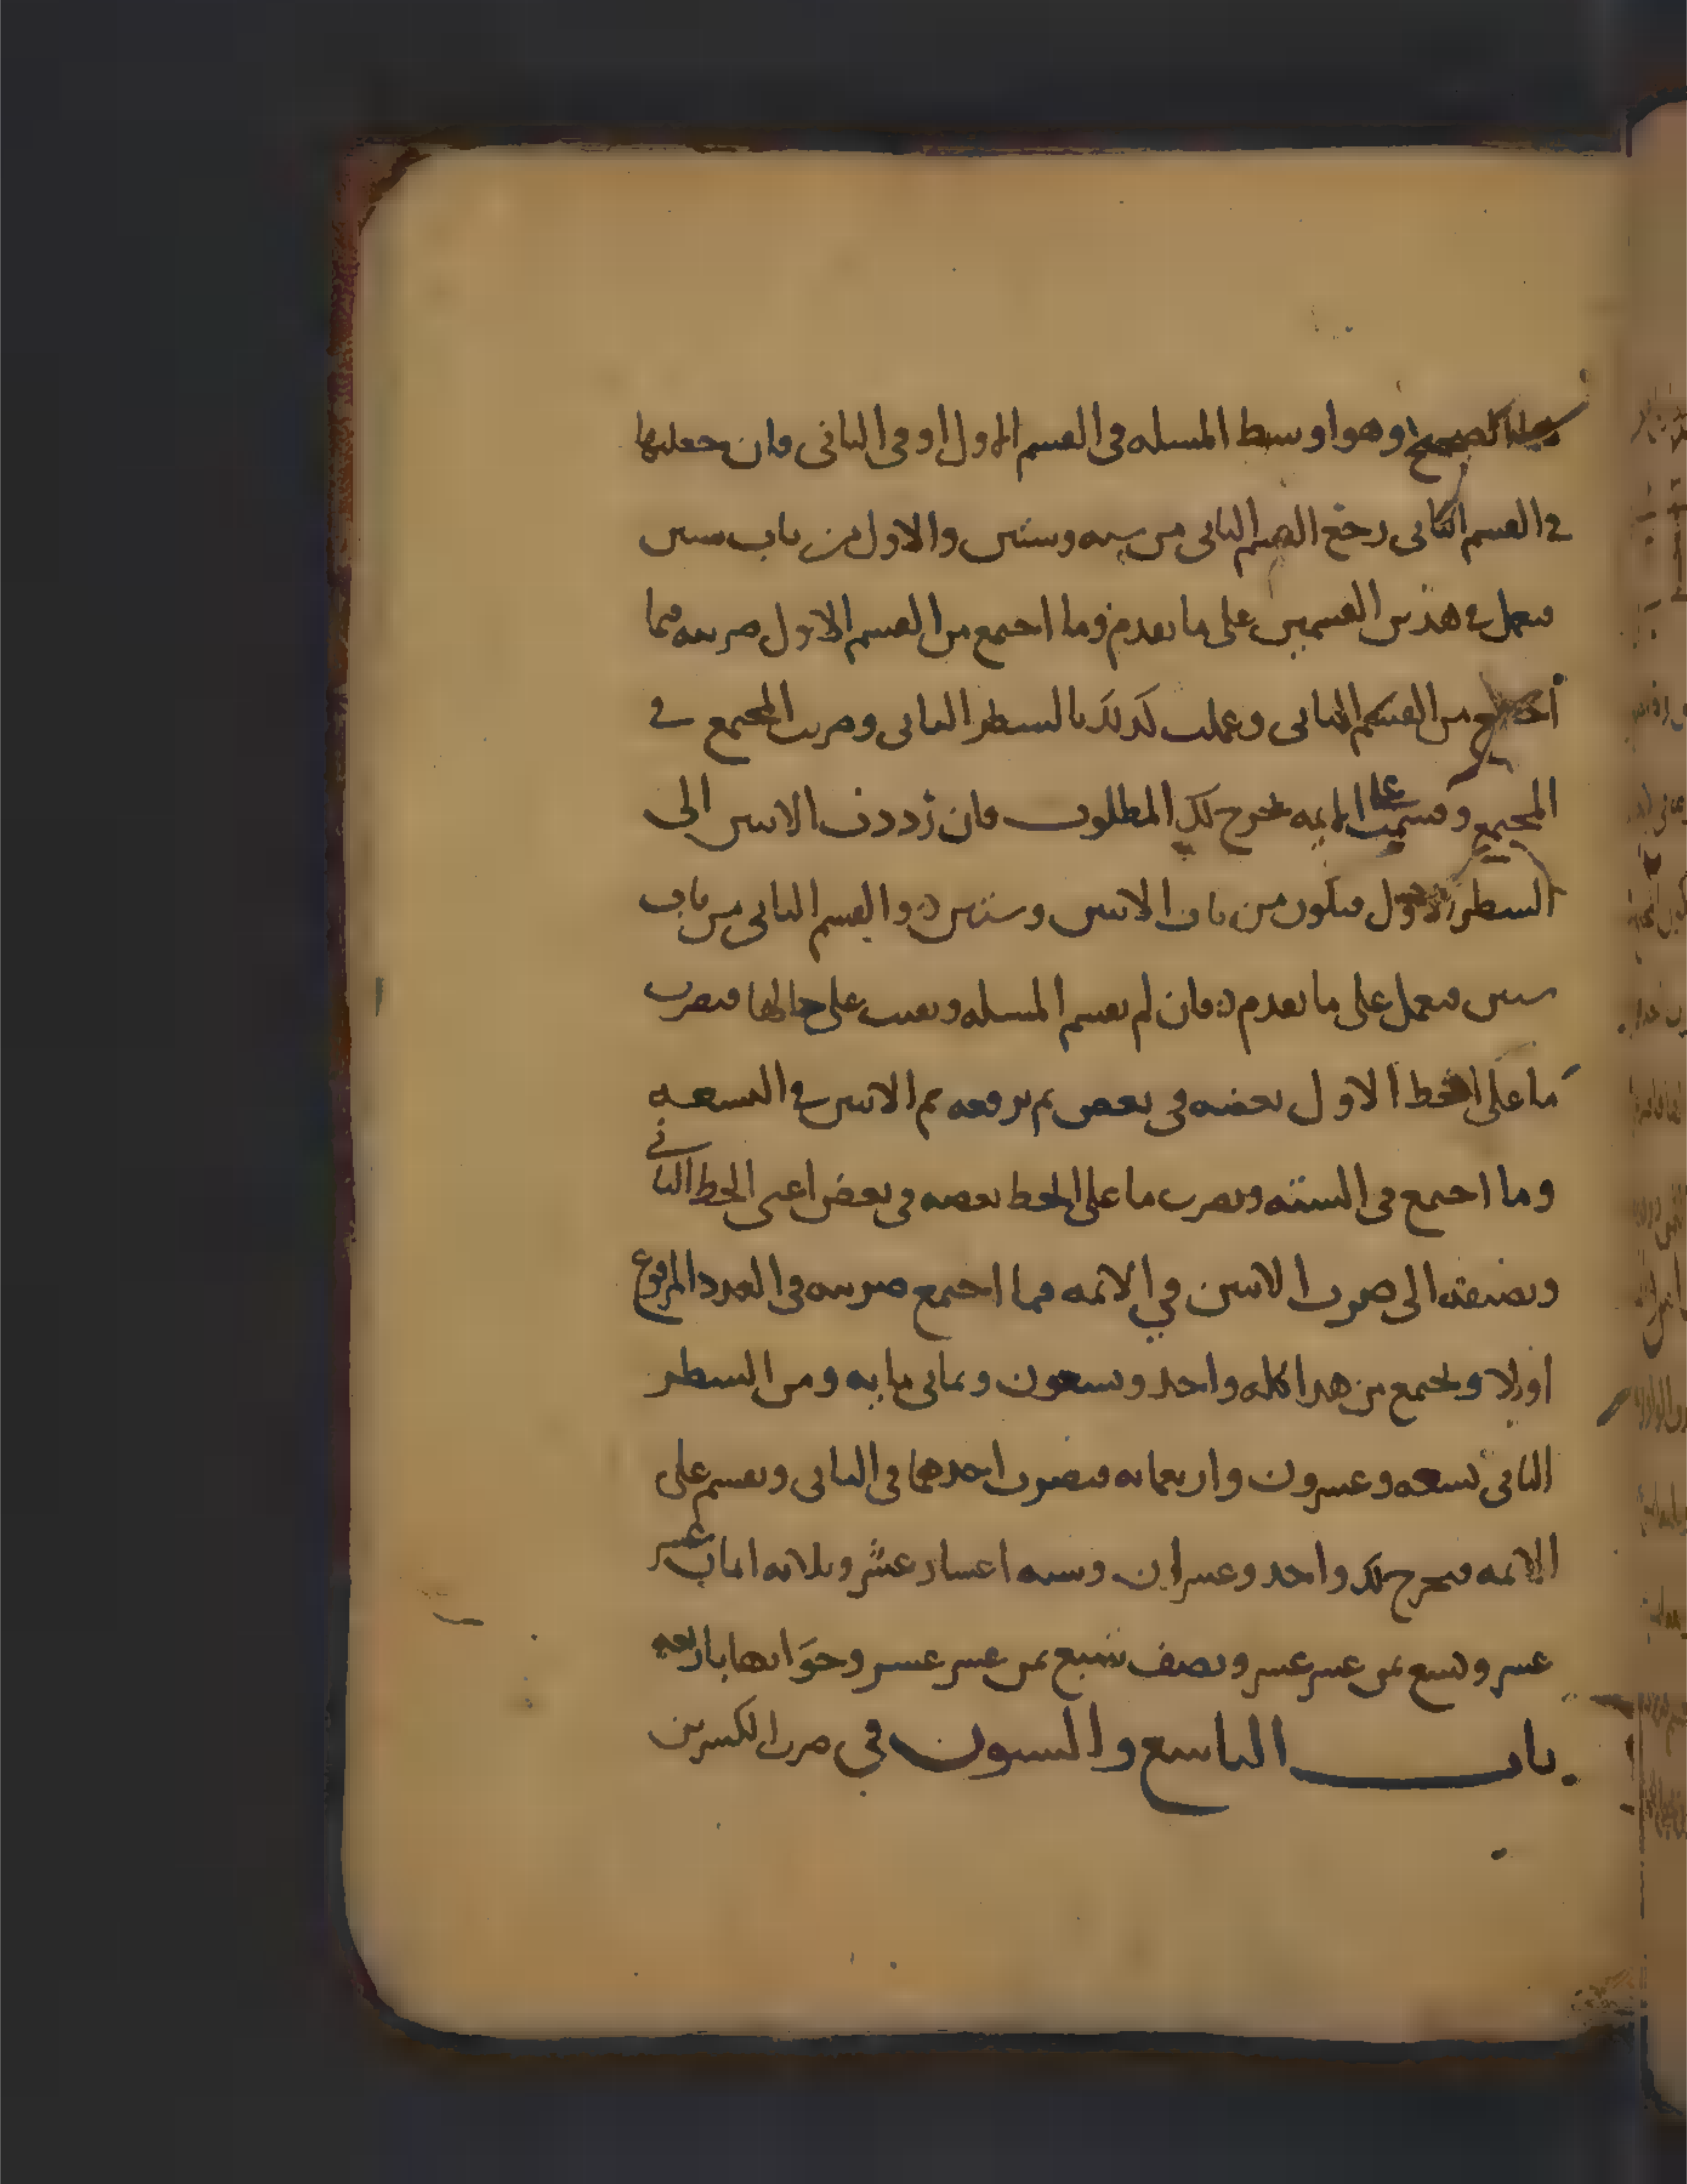 وهو اوسط المسله في القسم الاول او في الثاني فان جعلتها
في القسم الثاني رجع القسم الثاني من ستة وستين والاول من باب ستين
فتعمل في هذين القسمين على ما تقدم فما اجتمع من القسم الاول ضربته فيما
اجتمع من القسم الثاني وعملت كذلك بالسطر الثاني وضربت المجتمع في
المجتمع وقسمت على الايمه يخرج لك المطلوب فان رددت الاثنين الى
السطر الاول فتكون من باب الاثنين وستين والقسم الثاني من باب
ستين فتعمل على ما تقدم فان لم تقسم المسله وبقيت على حالها فتضرب
ما على الخط الاول بعضه في بعض ثم ترفعه ثم الاثنين في التسعه
وما اجتمع في الستة وتضرب ما على الخط بعضه في بعض اعني الخط الثاني
وتضيفه الى ضرب الاثنين في الائمه فما اجتمع ضربته في العدد المرفوع
اولا ويجتمع من هذا كله واحد وتسعون وثماني مايه ومن السطر
الثاني تسعه وعشرون واربعمايه فتضرب احدهما في الثاني وتقسم على
الائمه فيخرج لك واحد وعشران وستة اعشار عشر وثلاثه اثمان عشر
عشر وتسع ثمن عشر عشر ونصف تسع ثمن عشر عشر وجوابها باربعه
باب التاسع والستون في ضرب الكسرين